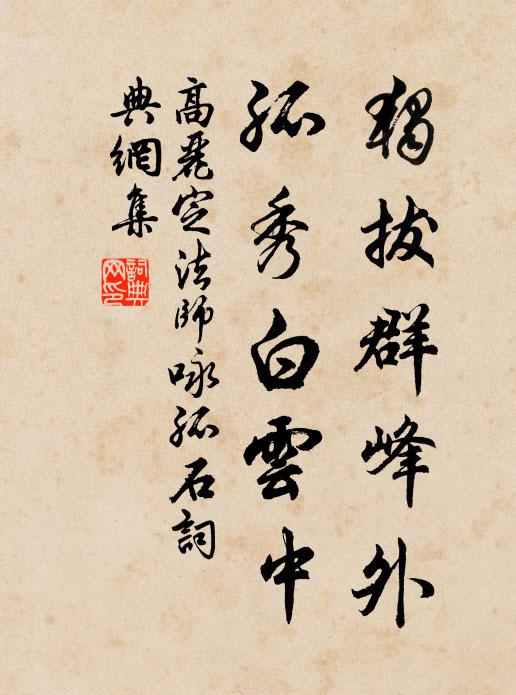 獨拔群峰外
孤秀白雲中
高麗定法師咏孤石詞
典網集
詞典網印